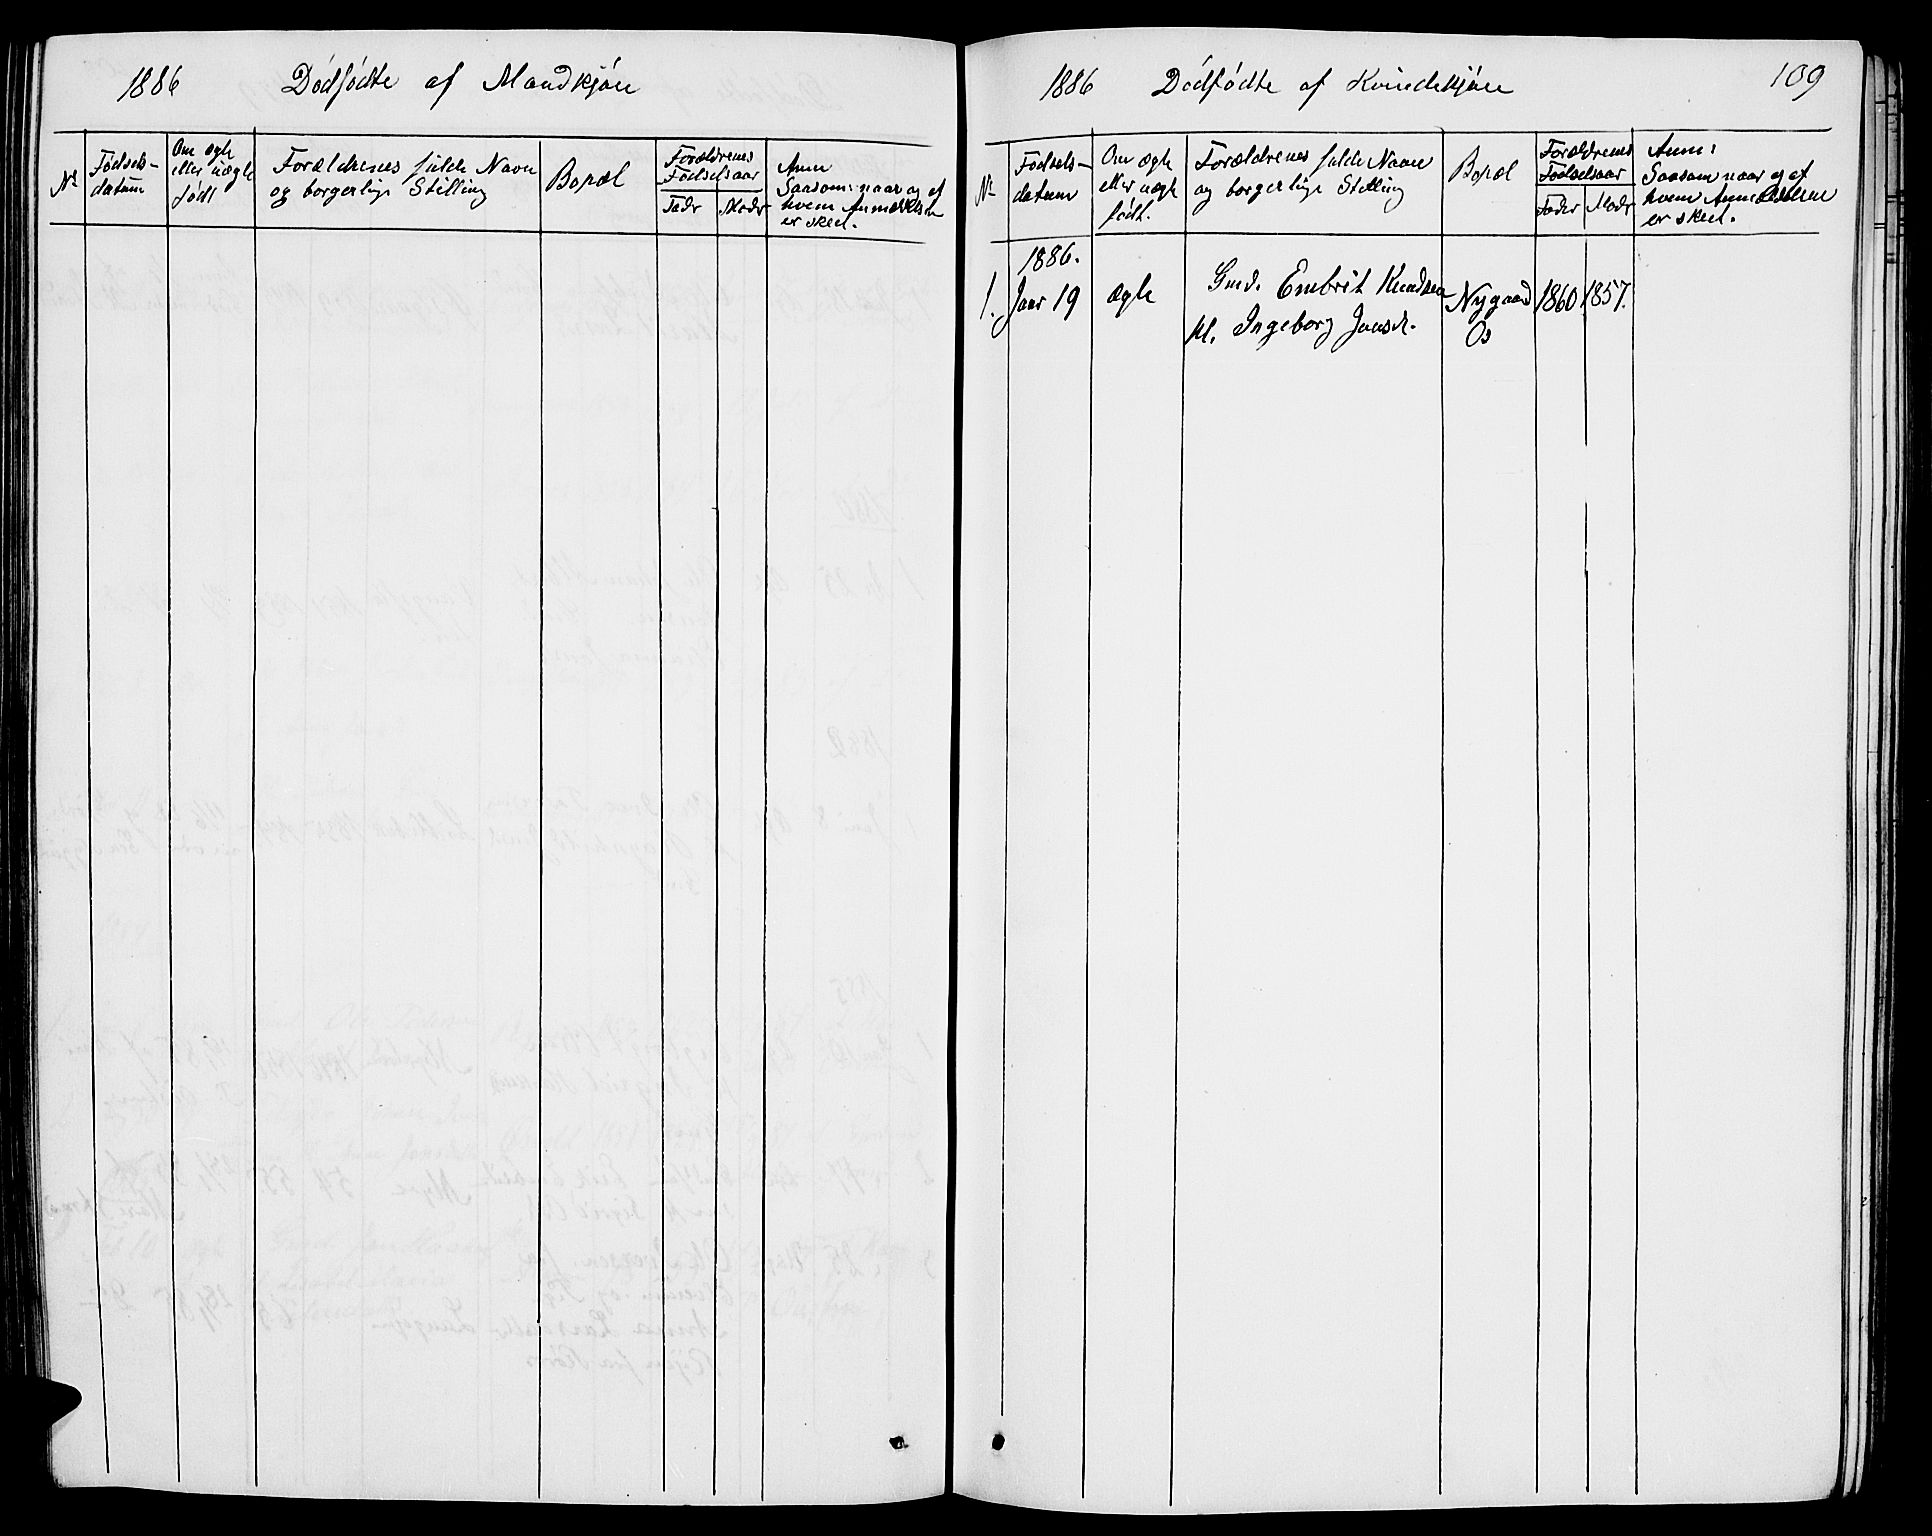 1886 Dødfødte af Mandkjøn
No
Fødsels-
datum
Om ægte
eller uægte
født
Forældrenes fulde Navn
og borgerlige Stilling
Bopæl
Forældrenes
Fødselsaar
Fader Moder
Anm
Saasom: naar og af
hvem Anmeldelsen
er skeet.
1886 Dødfødte af Kvindekjøn 109
No
Fødsels-
datum
Om ægte
eller uægte
født.
Forældrenes fulde Navne
og borgerlige Stilling
Bopæl
Forældrenes
Fødselsaar
Fader Moder
Anm:
Saasom naar og af
hvem Anmeldelsen
er skeet.
1886.
1. Jaar 19 ægte Gmd. Embrit Knudsen Nygaard 1860 1857.
H. Ingeborg Jonsd. Os